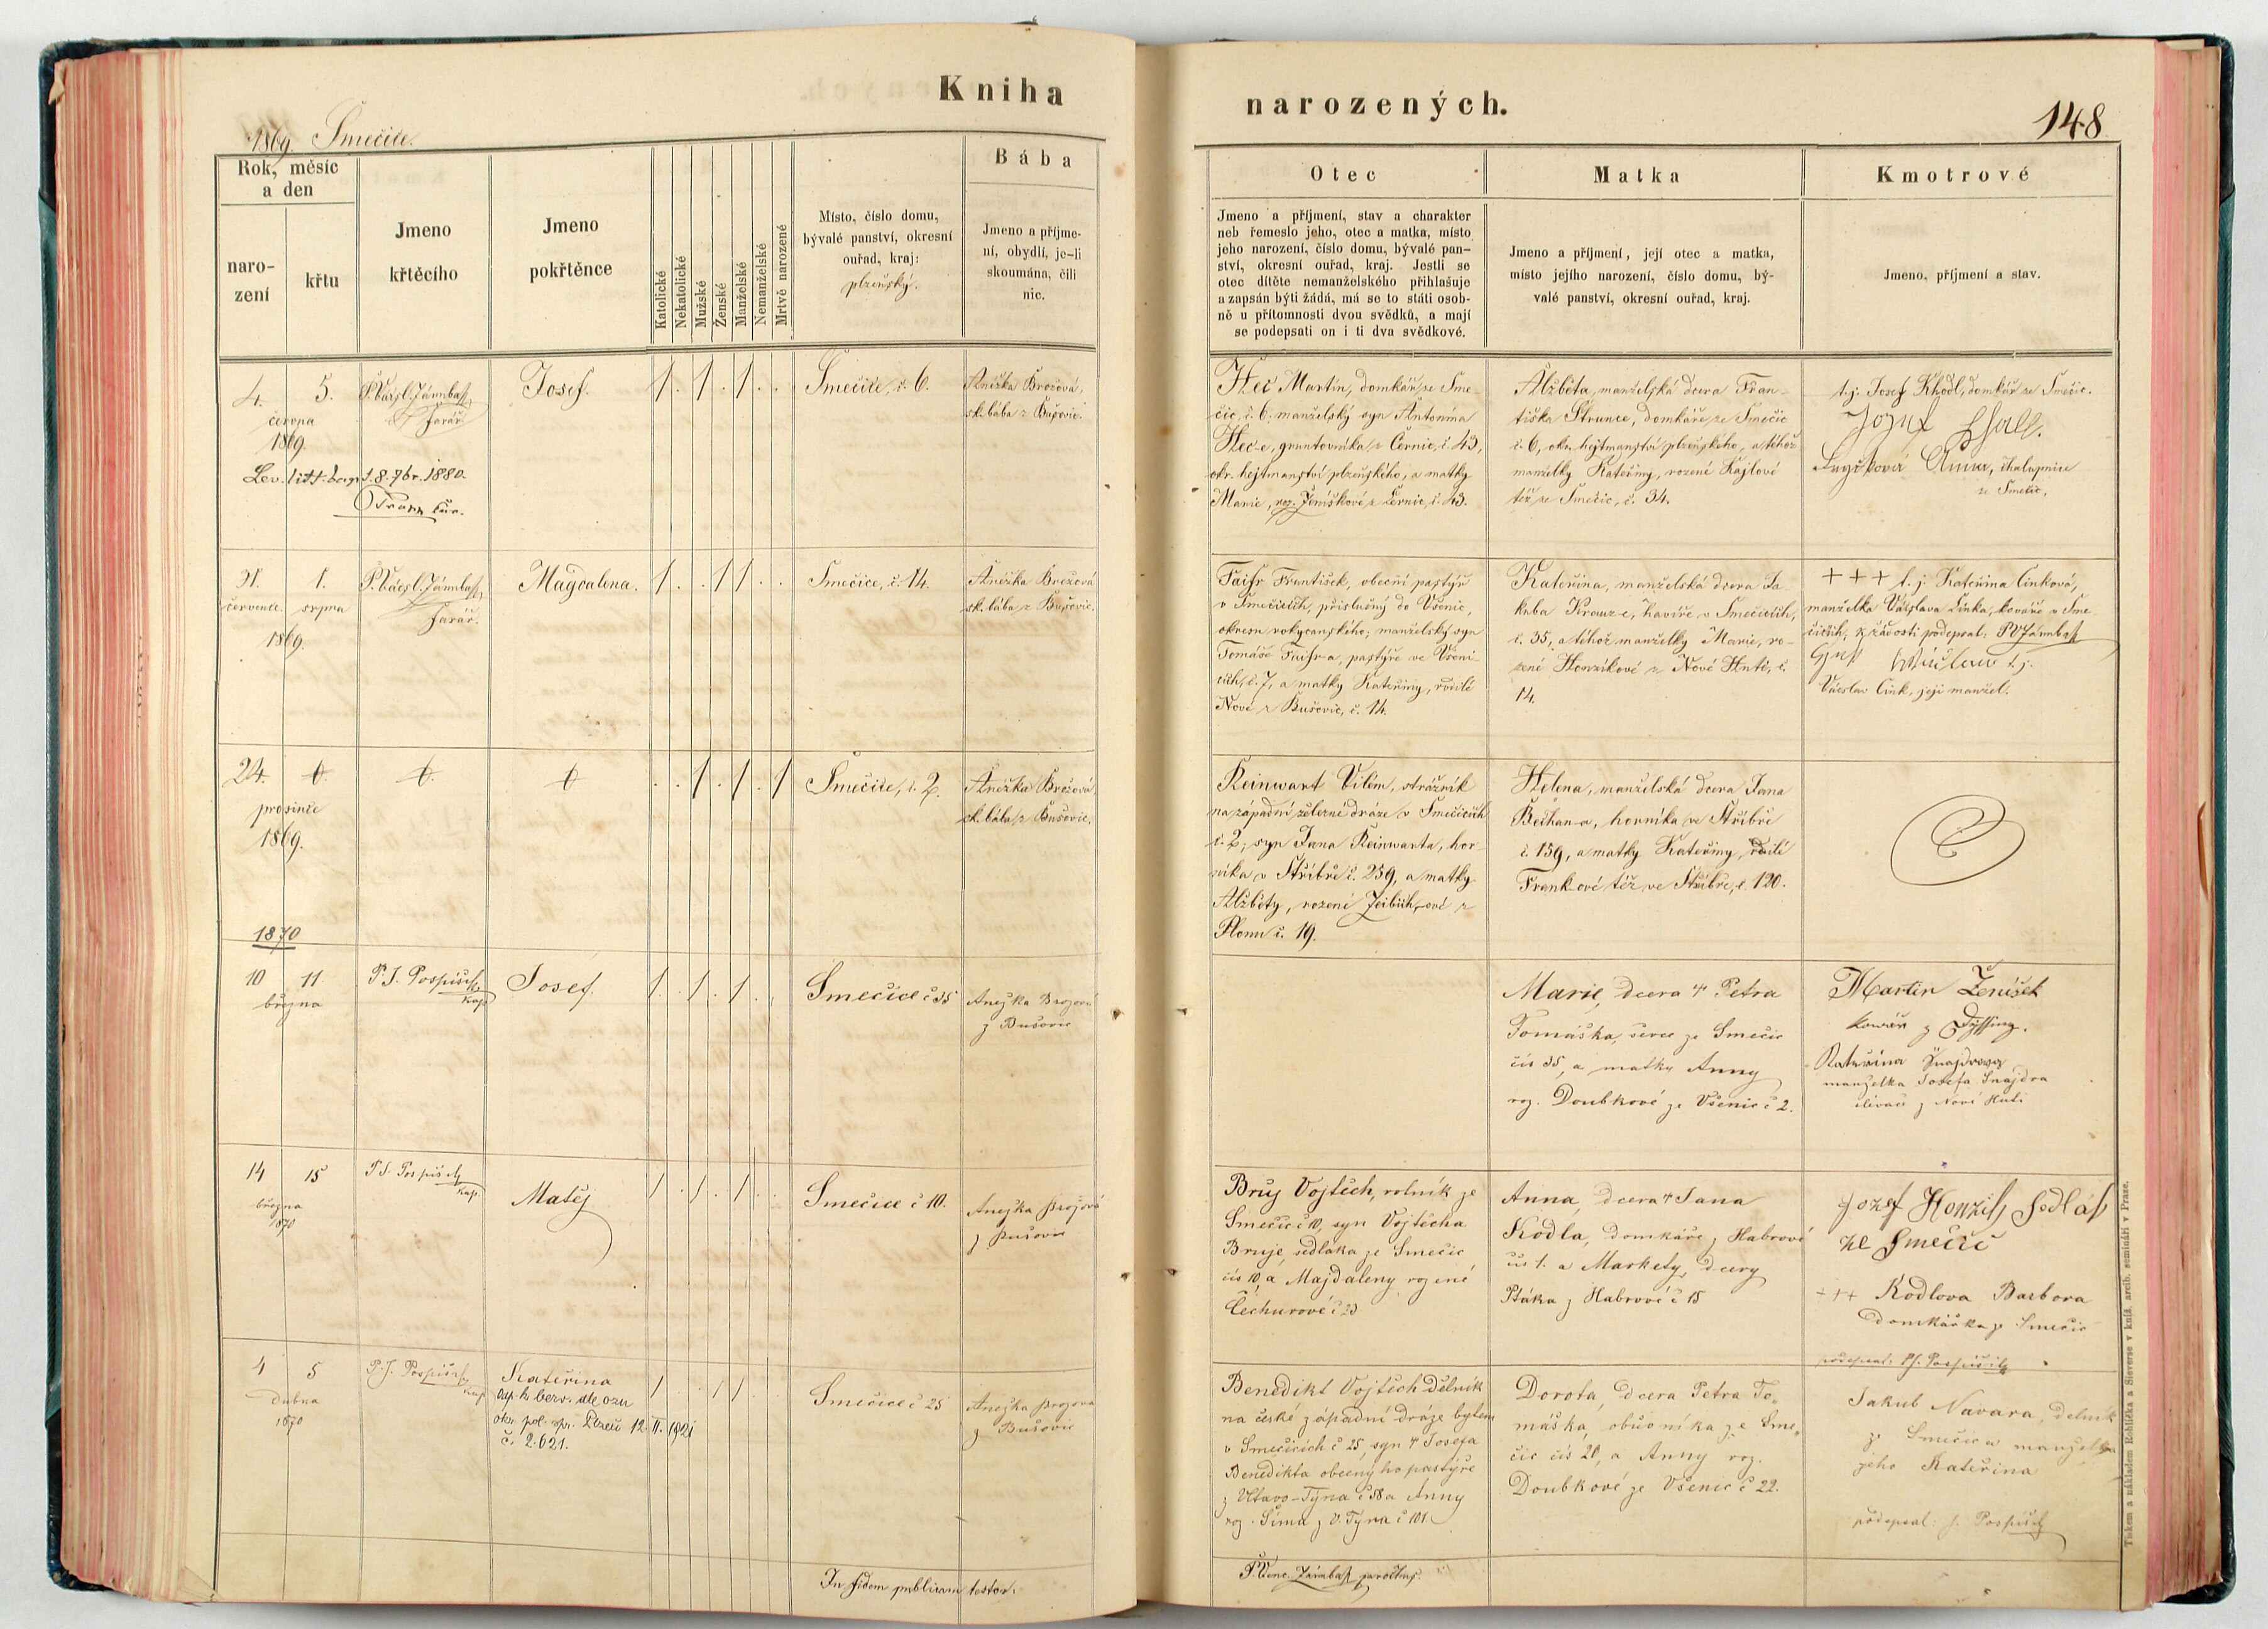 Kniha
narozených.
148
1869. Smečice.
Rok, měsíc
a den
naro-
zení
křtu
Jmeno
křtěcího
Jmeno
pokřtěnce
Katolické
Nekatolické
Mužské
Ženské
Manželské
Nemanželské
Mrtvě narozené
Místo, číslo domu,
bývalé panství, okresní
ouřad, kraj:
plzeňský.
Bába
Jmeno a příjme-
ní, obydlí, je-li
skoumána, čili
nic.
Otec
Jmeno a příjmení, stav a charakter
neb řemeslo jeho, otec a matka, místo
jeho narození, číslo domu, bývalé pan-
ství, okresní ouřad, kraj. Jestli se
otec dítěte nemanželského přihlašuje
a zapsán býti žádá, má se to státi osob-
ně u přítomnosti dvou svědků, a mají
se podepsati on i ti dva svědkové.
Matka
Jmeno a příjmení, její otec a matka,
místo jejího narození, číslo domu, bý-
valé panství, okresní ouřad, kraj.
Kmotrové
Jmeno, příjmení a stav.
4. 5.
června
1869.
farář.
Josef.
1 . 1 . 1 . .
Smečice, č. 6.
Anežka Brožová,
zk. bába z Bušovic.
Martin, domkář ze Sme-
čic, č. 6, manželský syn Antonína
gruntovníka z Černic, č. 43,
okr. hejtmanství plzeňského, a matky
Marie, roz. Jeníškové z Černic, č. 43.
Alžběta, manželská dcera Fran-
tiška Strunce, domkáře ze Smečic
č. 6, okr. hejtmanství plzeňského, a téhož
manželky Kateřiny, rozené Kajlové
též ze Smečic, č. 34.
t. j. Josef Khodl, domkář ze Smečic.
Anna, chalupnice
ze Smečic.
31. 1.
července. srpna
1869.
farář.
Magdalena.
1 . . 1 1 . .
Smečice, č. 14.
Anežka Brožová
zk. bába z Bušovic.
Faifr František, obecní pastýř
v Smečicích, příslušný do Všenic,
okresu rokycanského; manželský syn
Tomáše Faifr-a, pastýře ve Všeni-
cích, č. 7, a matky Kateřiny, rodilé
Nové z Bušovic, č. 14.
Kateřina, manželská dcera Ja-
kuba Krauze, havíře v Smečicích,
č. 35, a téhož manželky Marie, ro-
zené Honzíkové z Nové Huti, č.
14.
+++ t. j. Kateřina Cinková,
manželka Václava Cinka, kováře v Sme
čicích, k žádosti podepsal:
t. j.
Václav Cink, její manžel.
24.
prosince
1869.
. . 1 . 1 . 1
Smečice, č. 2.
Anežka Brožová,
zk. bába z Bušovic.
Reinwart Vilém, strážník
na západní železné dráze v Smečicích
č. 2; syn Jana Reinwarta, hor-
níka v Stříbře č. 259, a matky
Alžběty, rozené
Plonu č. 19.
Helena, manželská dcera Jana
horníka ve Stříbře
č. 159, a matky Kateřiny, rodilé
Frank-ové též ve Stříbře, č. 120.
1870
10 11
března
P. J. Pospíšil
kap.
Josef.
1 . 1 . 1 . .
Smečice č 35
Anežka Brožová
z Bušovic
Marie, dcera † Petra
Tomáška, ševce ze Smečic
čís 35, a matky Anny
roz. Doubkové ze Všenic č 2.
Martin Ženíšek
kowář z
Kateřina Šnajdrova
manželka Josefa Šnajdra
slévače z Nové Huti
14 15
března
1870
P J. Pospíšil
kap.
Matěj
1 . 1 . 1 . .
Smečice č 10.
Anežka Brožová
z Bušovic
Bruj Vojtěch, rolník ze
Smečic č 10, syn Vojtěcha
Bruje, sedláka ze Smečic
čís 10, a Majdaleny rozené
Čechurové č
Anna, dcera † Jana
Kodla, domkáře z Habrové
čís 1. a Markety, dcery
Ptáka z Habrové č 15
Jozef Honzik Sedlák
ze Smečic
+++ Kodlova Barbora
Domkářka ze Smečic
podepsal: P. J. Pospíšil
4 5
dubna
1870
P. J. Pospíšil
kap
Kateřina
okr. pol. spr. Plzeň 12. II. 1921
č. 2.621.
1 . . 1 1
Smečice č 25
Anežka Brožová
z Bušovic
Benedikt Vojtěch dělník
na české západní dráze bytem
v Smečicích č 25, syn † Josefa
Benedikta obecného pastýře
z Vltavo-Týna č 58 a Anny
roz. Šíma z V. Týna č 101
Dorota, dcera Petra To-
máška, obuvníka ze Sme-
čic čís 20, a Anny roz.
Doubkové ze Všenic č 22.
Jakub Navara, dělník
ze Smečic a manželka
jeho Kateřina
podepsal: J. Pospíšil
In fidem publicam testor:
Tiskem a nákladem Rohlíčka a Sieverse v kníž. arcib. semináři v Praze.